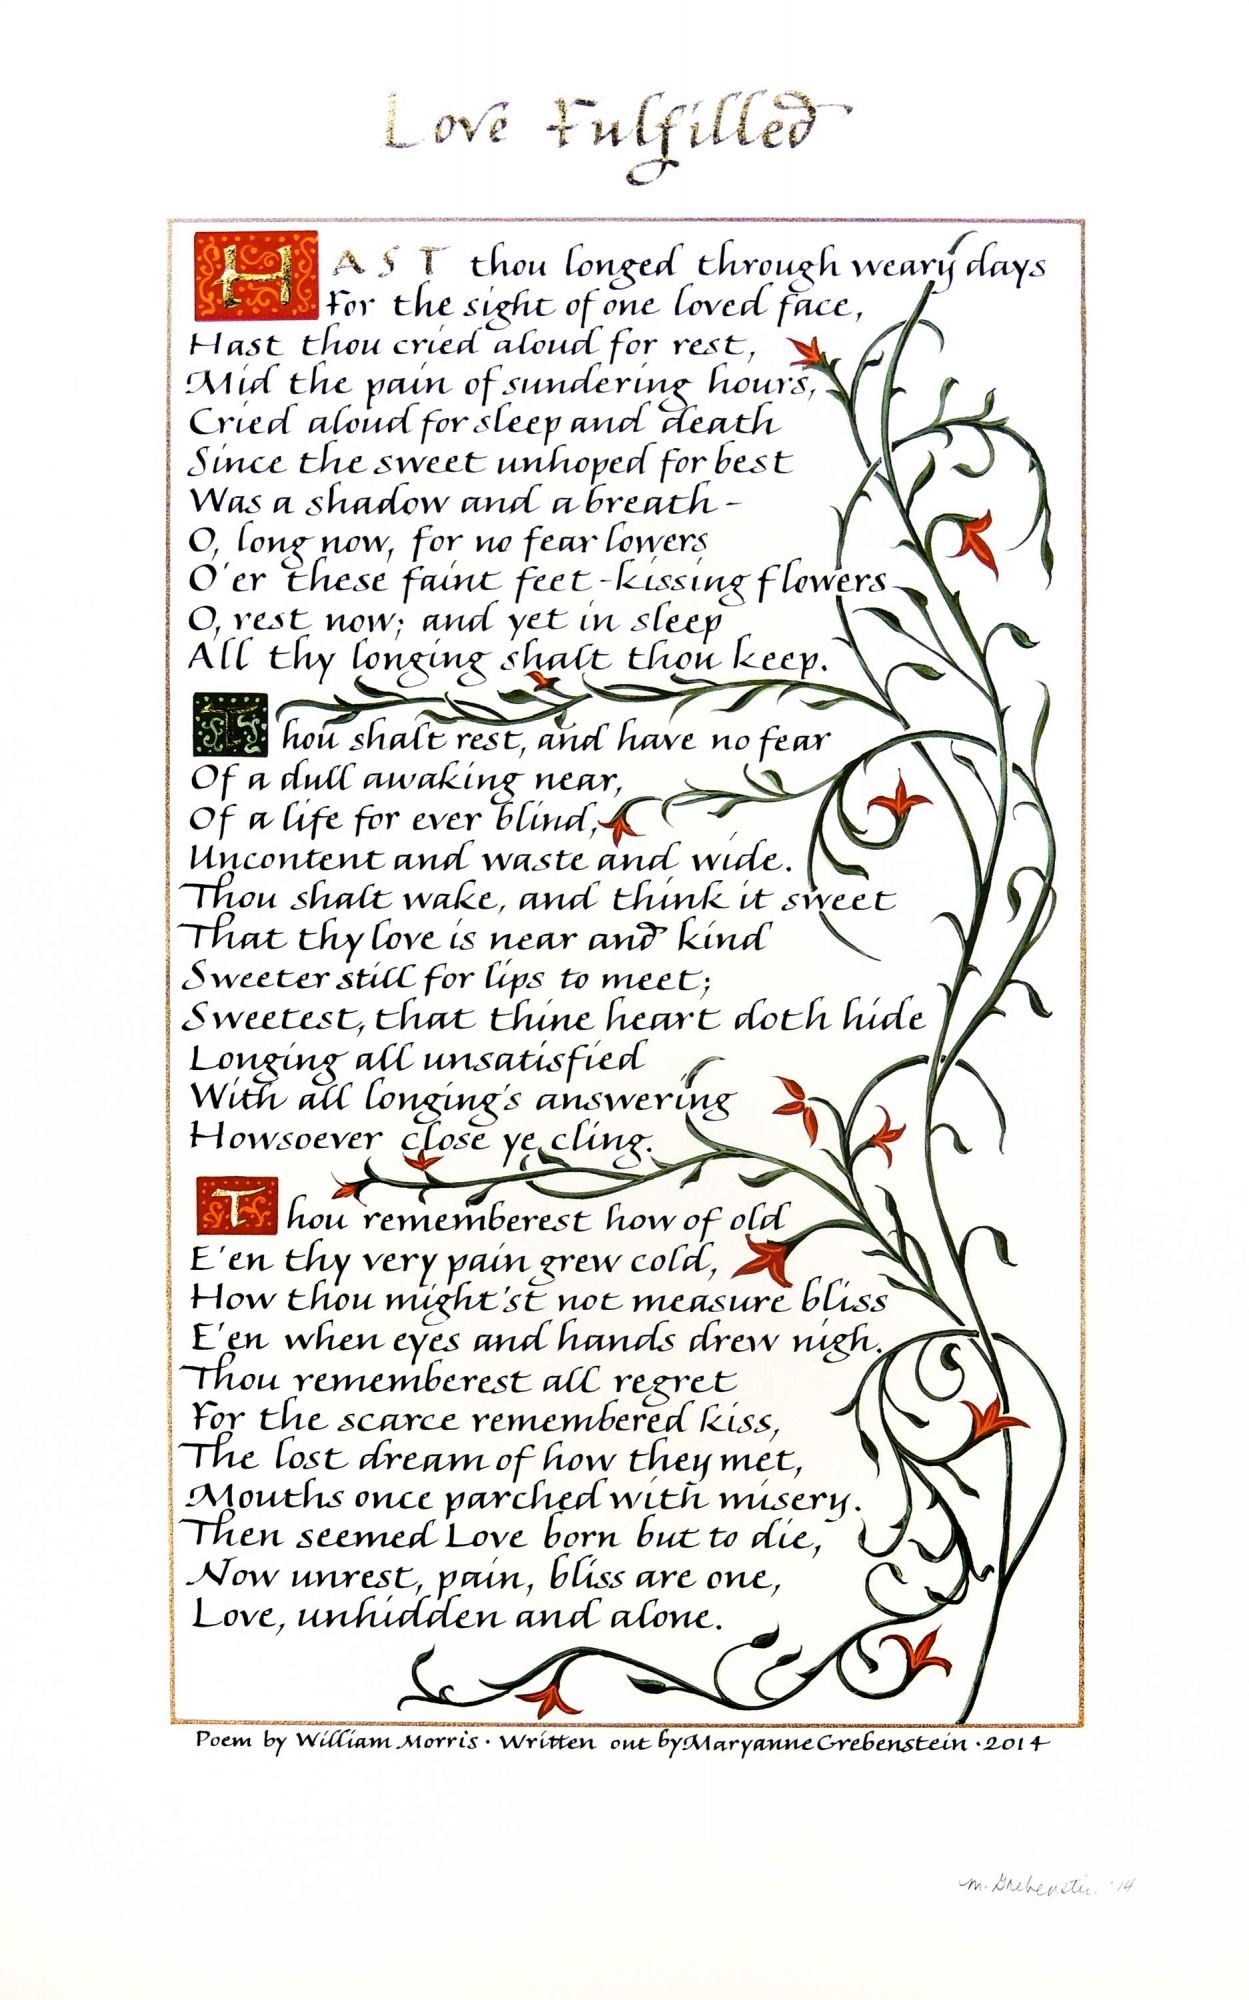 Love Fulfilled
HAST thou longed through weary days
For the sight of one loved face,
Hast thou cried aloud for rest,
Mid the pain of sundering hours,
Cried aloud for sleep and death
Since the sweet unhoped for best
Was a shadow and a breath –
O, long now, for no fear lowers
O'er these faint feet-kissing flowers
O, rest now; and yet in sleep
All thy longing shalt thou keep.
Thou shalt rest, and have no fear
Of a dull awaking near,
Of a life for ever blind,
Uncontent and waste and wide.
Thou shalt wake, and think it sweet
That thy love is near and kind
Sweeter still for lips to meet;
Sweetest, that thine heart doth hide
Longing all unsatisfied
With all longing's answering
Howsoever close ye cling.
Thou rememberest how of old
E'en thy very pain grew cold,
How thou might'st not measure bliss
E'en when eyes and hands drew nigh.
Thou rememberest all regret
For the scarce remembered kiss,
The lost dream of how they met,
Mouths once parched with misery.
Then seemed Love born but to die,
Now unrest, pain, bliss are one,
Love, unhidden and alone.
Poem by William Morris · Written out by Maryanne Grebenstein · 2014
M. Grebenstein '14